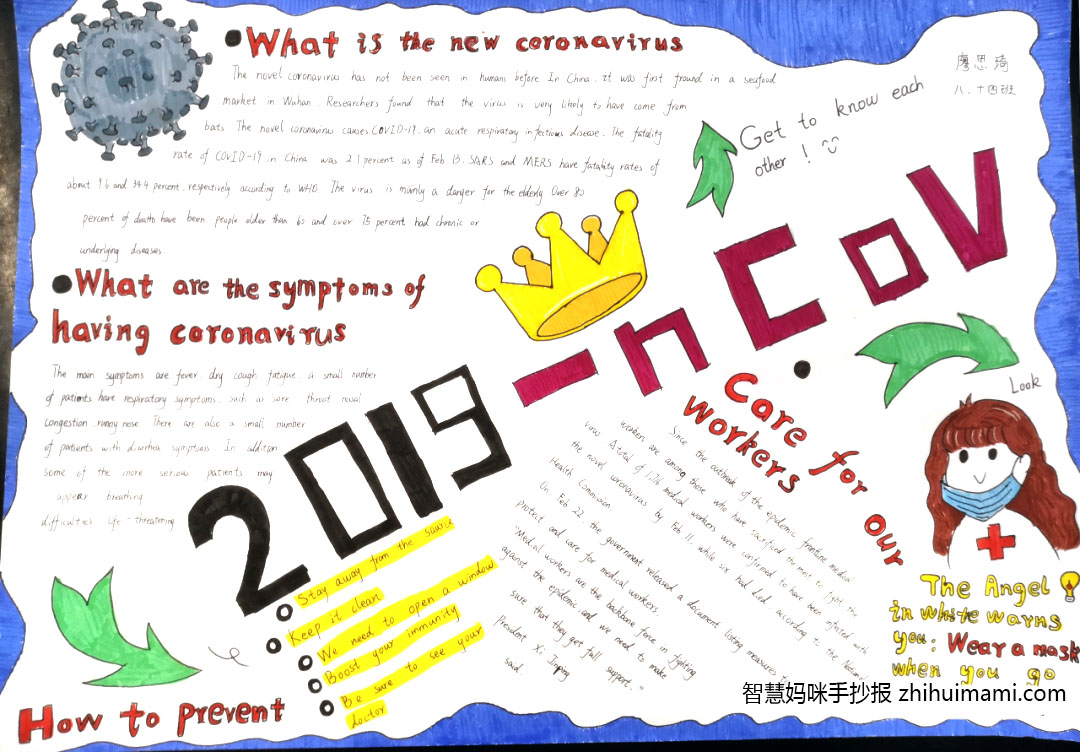 What is the new coronavirus
The novel coronavirus has not been seen in humans before In China. it was first fround in a seafood
market in Wuhan. Researchers found that the virus is very likely to have come from
bats The novel coronavirus causes COVID-19. an acute respiratory infectious disease. The fatality
rate of COVID-19 in China was 2.1 percent as of Feb 13. SARS and MERS have fatality rates of
about 9.6 and 34.4 percent. respectively according to WHO. The virus is mainly a danger for the elderly Over 80
percent of death have been people older than 60 and over 75 percent had chronic or
underlying diseases.
廖思琦
八.十四班
Get to know each
other ! :)
What are the symptoms of
having coronavirus
The main symptoms are fever. dry cough fatigue. a small number
of patients have respiratory symptoms. such as sore throat nasal
congestion. runny nose. There are also a small number
of patients with diarrhea symptoms. In addition
some of the more serious patients may
appear breathing
difficulties life-threatening
2019-nCoV
Care for our
workers
Since the outbreak of the epidemic frontline medical
workers are among those who have sacrificed the most to fight the
virus A total of 1,716 medical workers were confirmed to have been infected with
the novel coronavirus by Feb 11. while six had died according to the National
Health Commission
On Feb 22. the government released a document listing measures to
protect and care for medical workers
"Medical workers are the backbone force in fighting
against the epidemic and we need to make
sure that they get full support."
President Xi Jinping
said.
Look
The Angel
in white warns
you: Wear a mask
when you go
How to prevent
Stay away from the source
Keep it clean
We need to open a window
Boost your immunity
Be sure to see your
doctor
智慧妈咪手抄报 zhihuimami.com